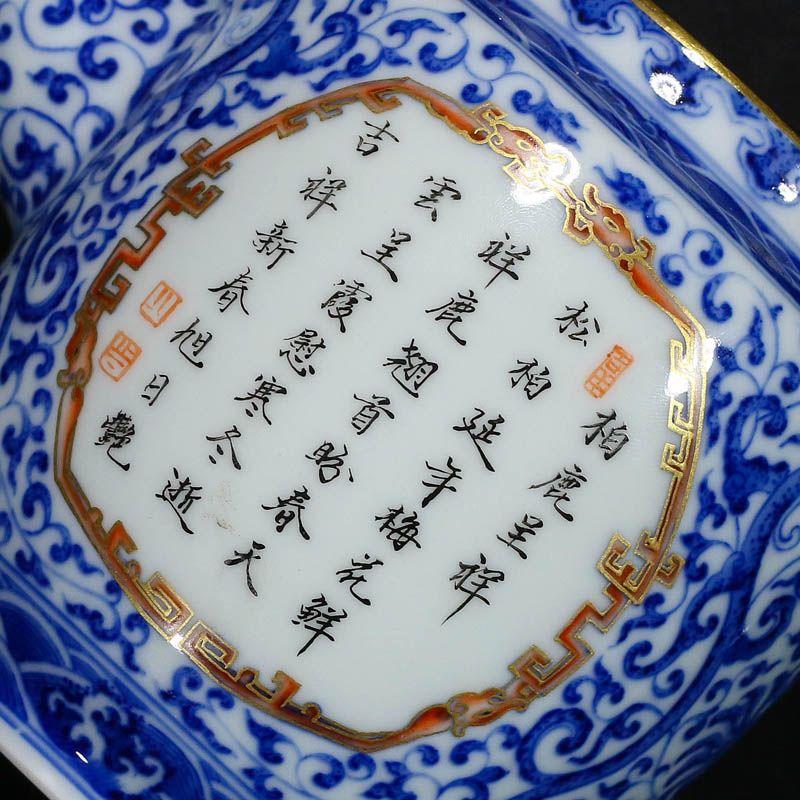 柏鹿呈祥
松柏延年梅花鮮
祥鹿翹首盼春天
雲呈霞慰寒冬逝
吉祥新春旭日艷